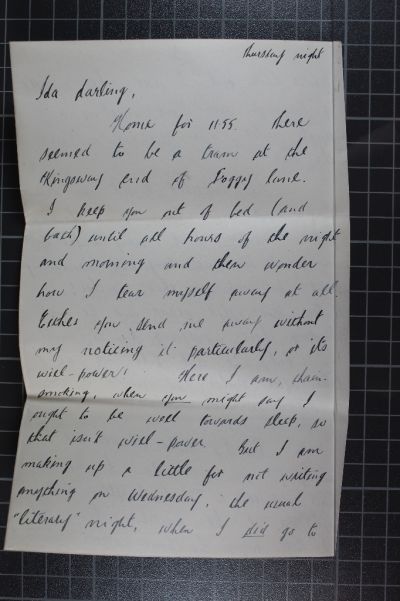 Thursday night
Ida darling,
Home for 11.55. There
seemed to be a tram at the
Kingsway end of Foggy lane.
I keep you out of bed (and
bath) until all hours of the night
and morning and then wonder
how I tear myself away at all.
Either you send me away without
my noticing it particularly, or its
will-power! Here I am, chain-
smoking, when you might say I
ought to be well towards sleep, so
that isn't will-power. But I am
making up a little for not writing
anything on Wednesday, the usual
"literary" night, when I did go to